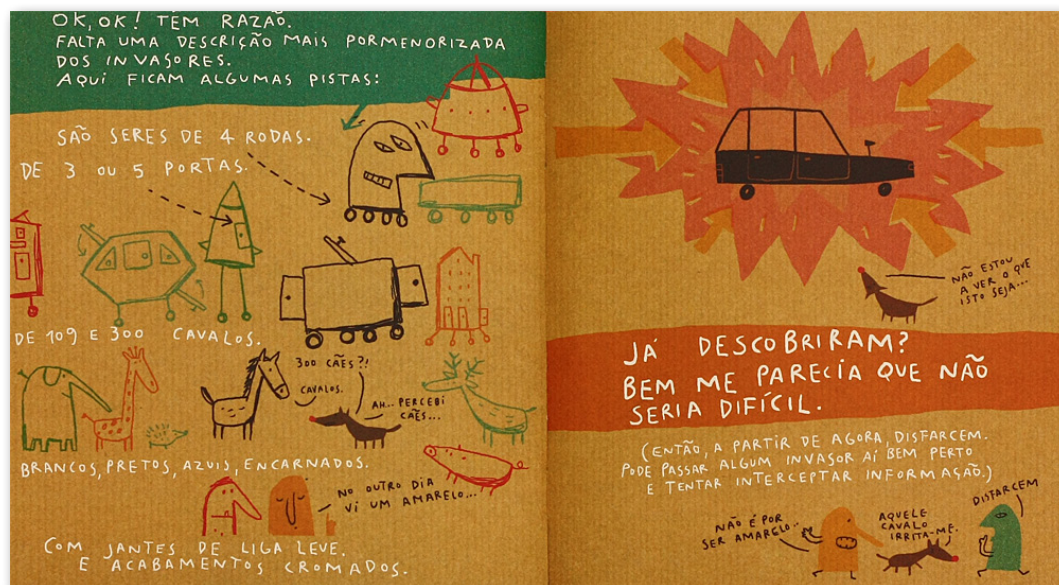 OK, OK! TÊM RAZÃO.
FALTA UMA DESCRIÇÃO MAIS PORMENORIZADA
DOS INVASORES.
AQUI FICAM ALGUMAS PISTAS:
SÃO SERES DE 4 RODAS.
DE 3 OU 5 PORTAS.
DE 109 E 300 CAVALOS.
300 CÃES?!
CAVALOS.
AH... PERCEBI
CÃES...
BRANCOS, PRETOS, AZUIS, ENCARNADOS.
NO OUTRO DIA
VI UM AMARELO...
COM JANTES DE LIGA LEVE.
E ACABAMENTOS CROMADOS.
NÃO ESTOU
A VER O QUE
ISTO SEJA...
JÁ DESCOBRIRAM?
BEM ME PARECIA QUE NÃO
SERIA DIFÍCIL.
(ENTÃO, A PARTIR DE AGORA, DISFARCEM.
PODE PASSAR ALGUM INVASOR AÍ BEM PERTO
E TENTAR INTERCEPTAR INFORMAÇÃO.)
NÃO É POR
SER AMARELO...
AQUELE
CAVALO
IRRITA-ME.
DISFARCEM